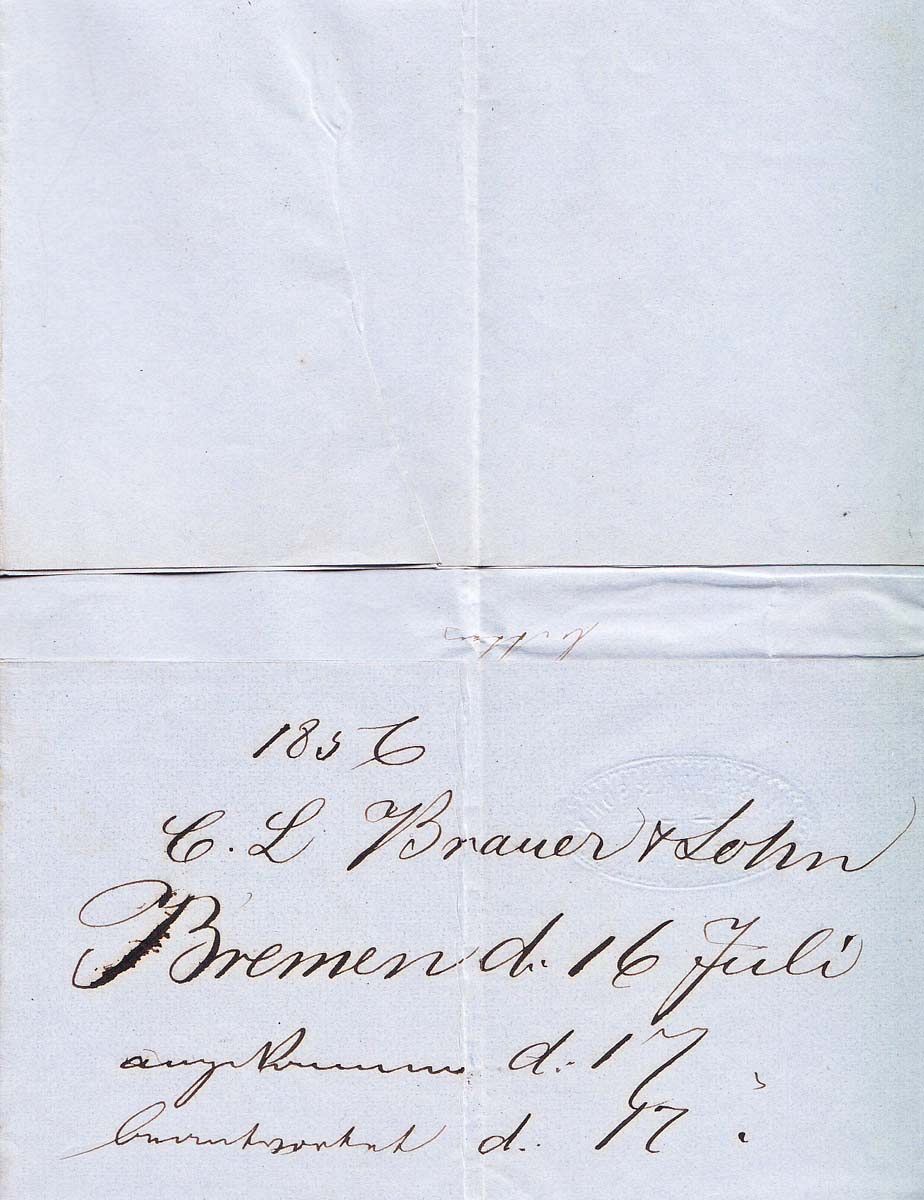 1856
C. L Brauer & Sohn
Bremen d. 16 Juli
angekommen d. 17
beantwortet d. 17